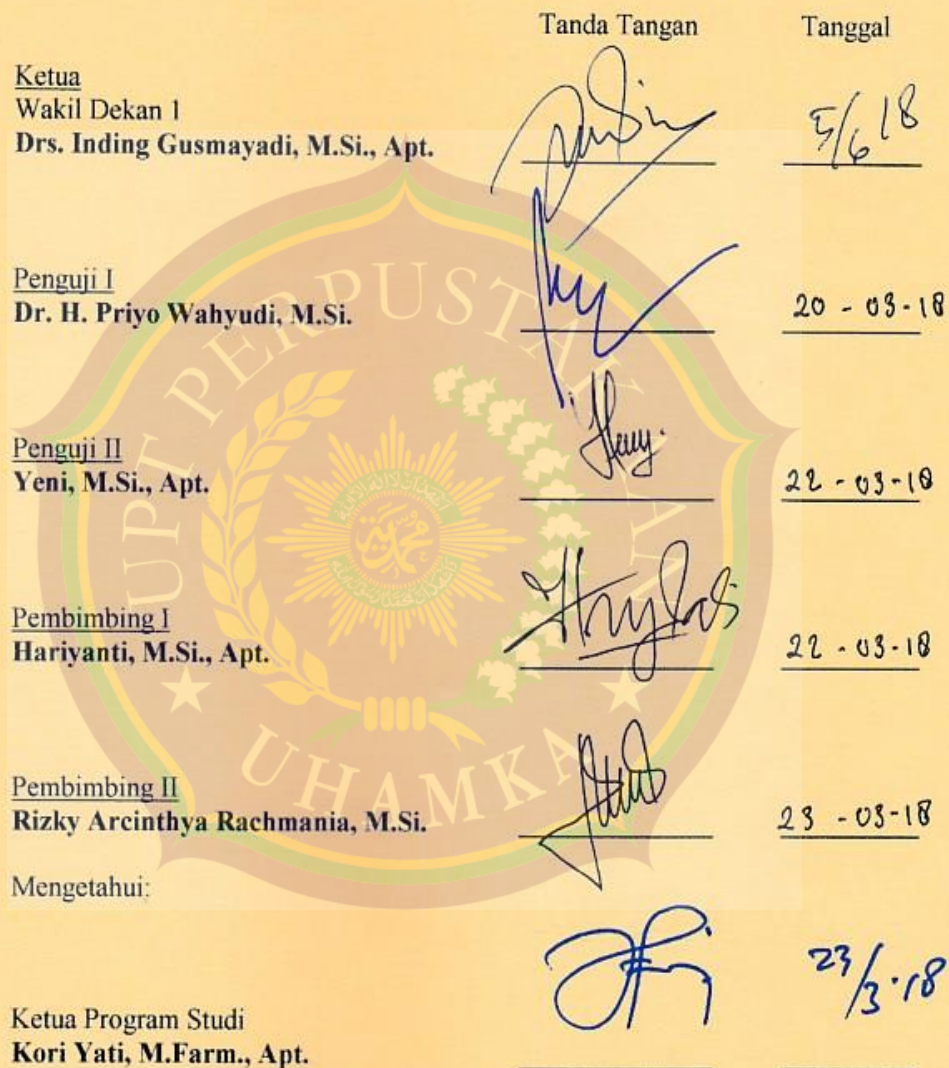 Tanda Tangan Tanggal
Ketua
Wakil Dekan 1
Drs. Inding Gusmayadi, M.Si., Apt. 5/6 18
Penguji I
Dr. H. Priyo Wahyudi, M.Si. 20 - 03 - 18
Penguji II
Yeni, M.Si., Apt. 22 - 03 - 18
Pembimbing I
Hariyanti, M.Si., Apt. 22 - 03 - 18
Pembimbing II
Rizky Arcinthya Rachmania, M.Si. 23 - 03 - 18
Mengetahui:
23/3 . 18
Ketua Program Studi
Kori Yati, M.Farm., Apt.
UPT PERPUSTAKAAN
UHAMKA